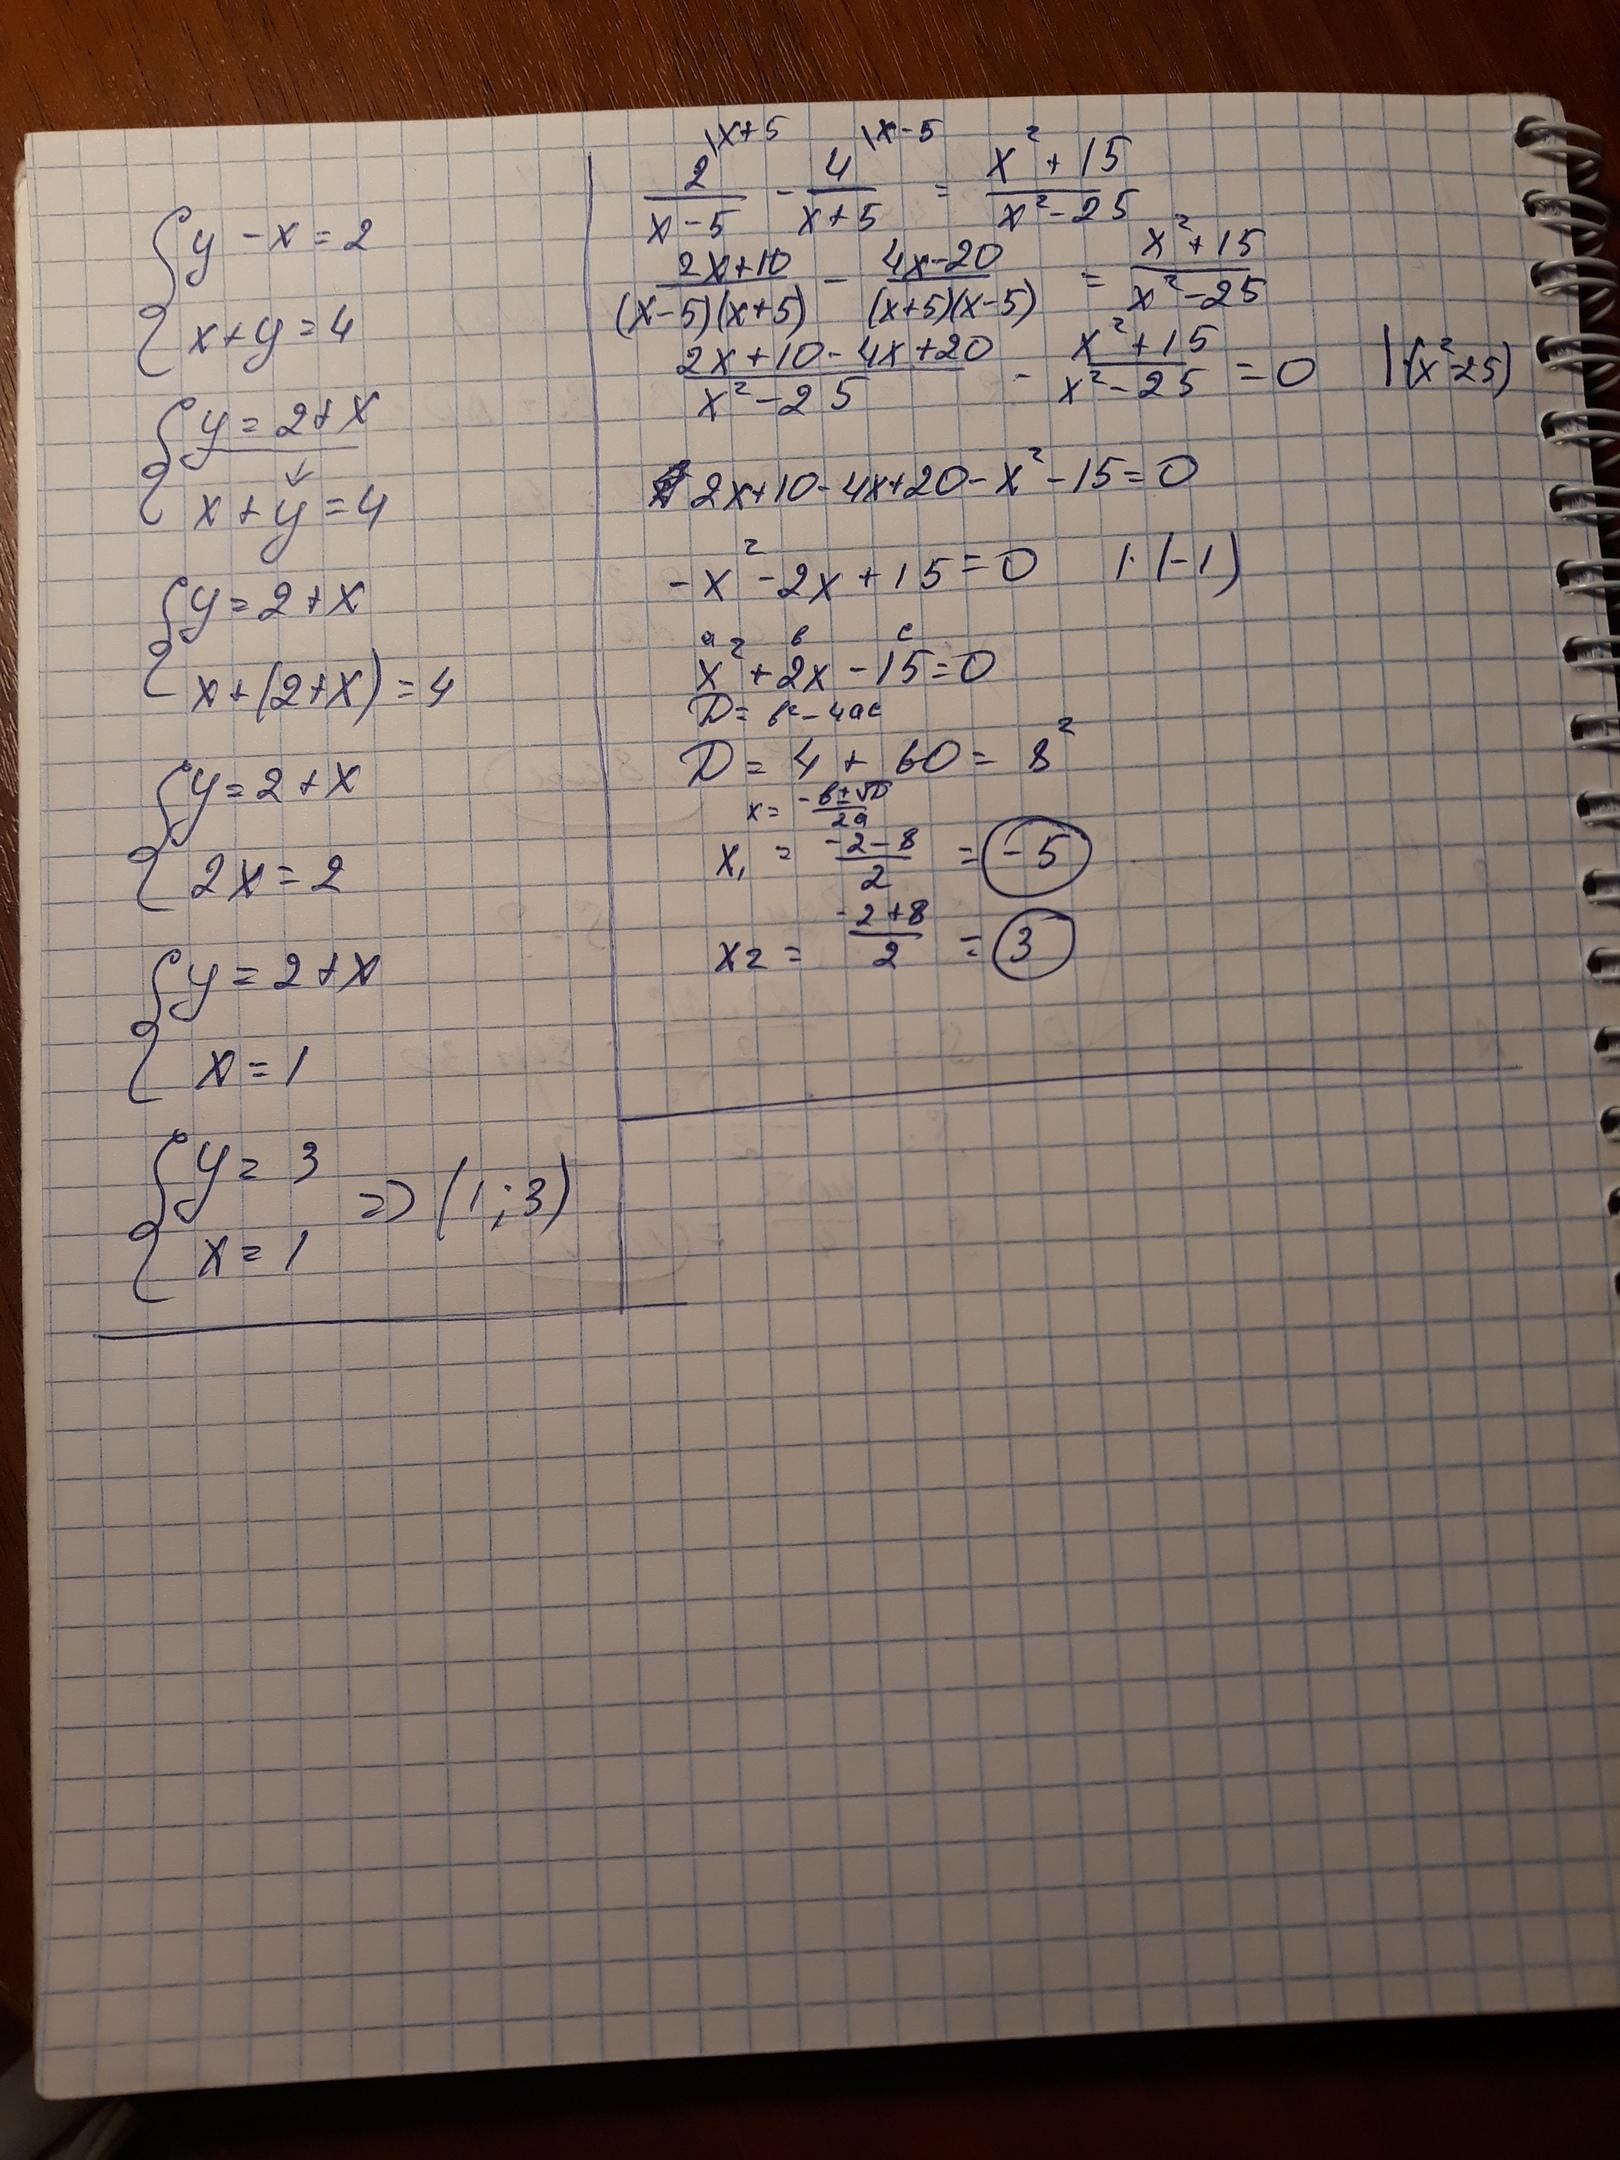 y - x = 2
x + y = 4
y = 2 + x
x + y = 4
y = 2 + x
x + (2 + x) = 4
y = 2 + x
2x = 2
y = 2 + x
x = 1
y = 3
x = 1
=> (1; 3)
\x+5 \x-5
2/(x-5) - 4/(x+5) = (x²+15)/(x²-25)
(2x+10)/((x-5)(x+5)) - (4x-20)/((x+5)(x-5)) = (x²+15)/(x²-25)
(2x+10-4x+20)/(x²-25) - (x²+15)/(x²-25) = 0 |·(x²-25)
2x+10-4x+20-x²-15=0
-x²-2x+15=0 |·(-1)
a в c
x²+2x-15=0
D = в²-4ac
D = 4 + 60 = 8²
x = (-в±√D)/2a
x₁ = (-2-8)/2 = -5
x2 = (-2+8)/2 = 3